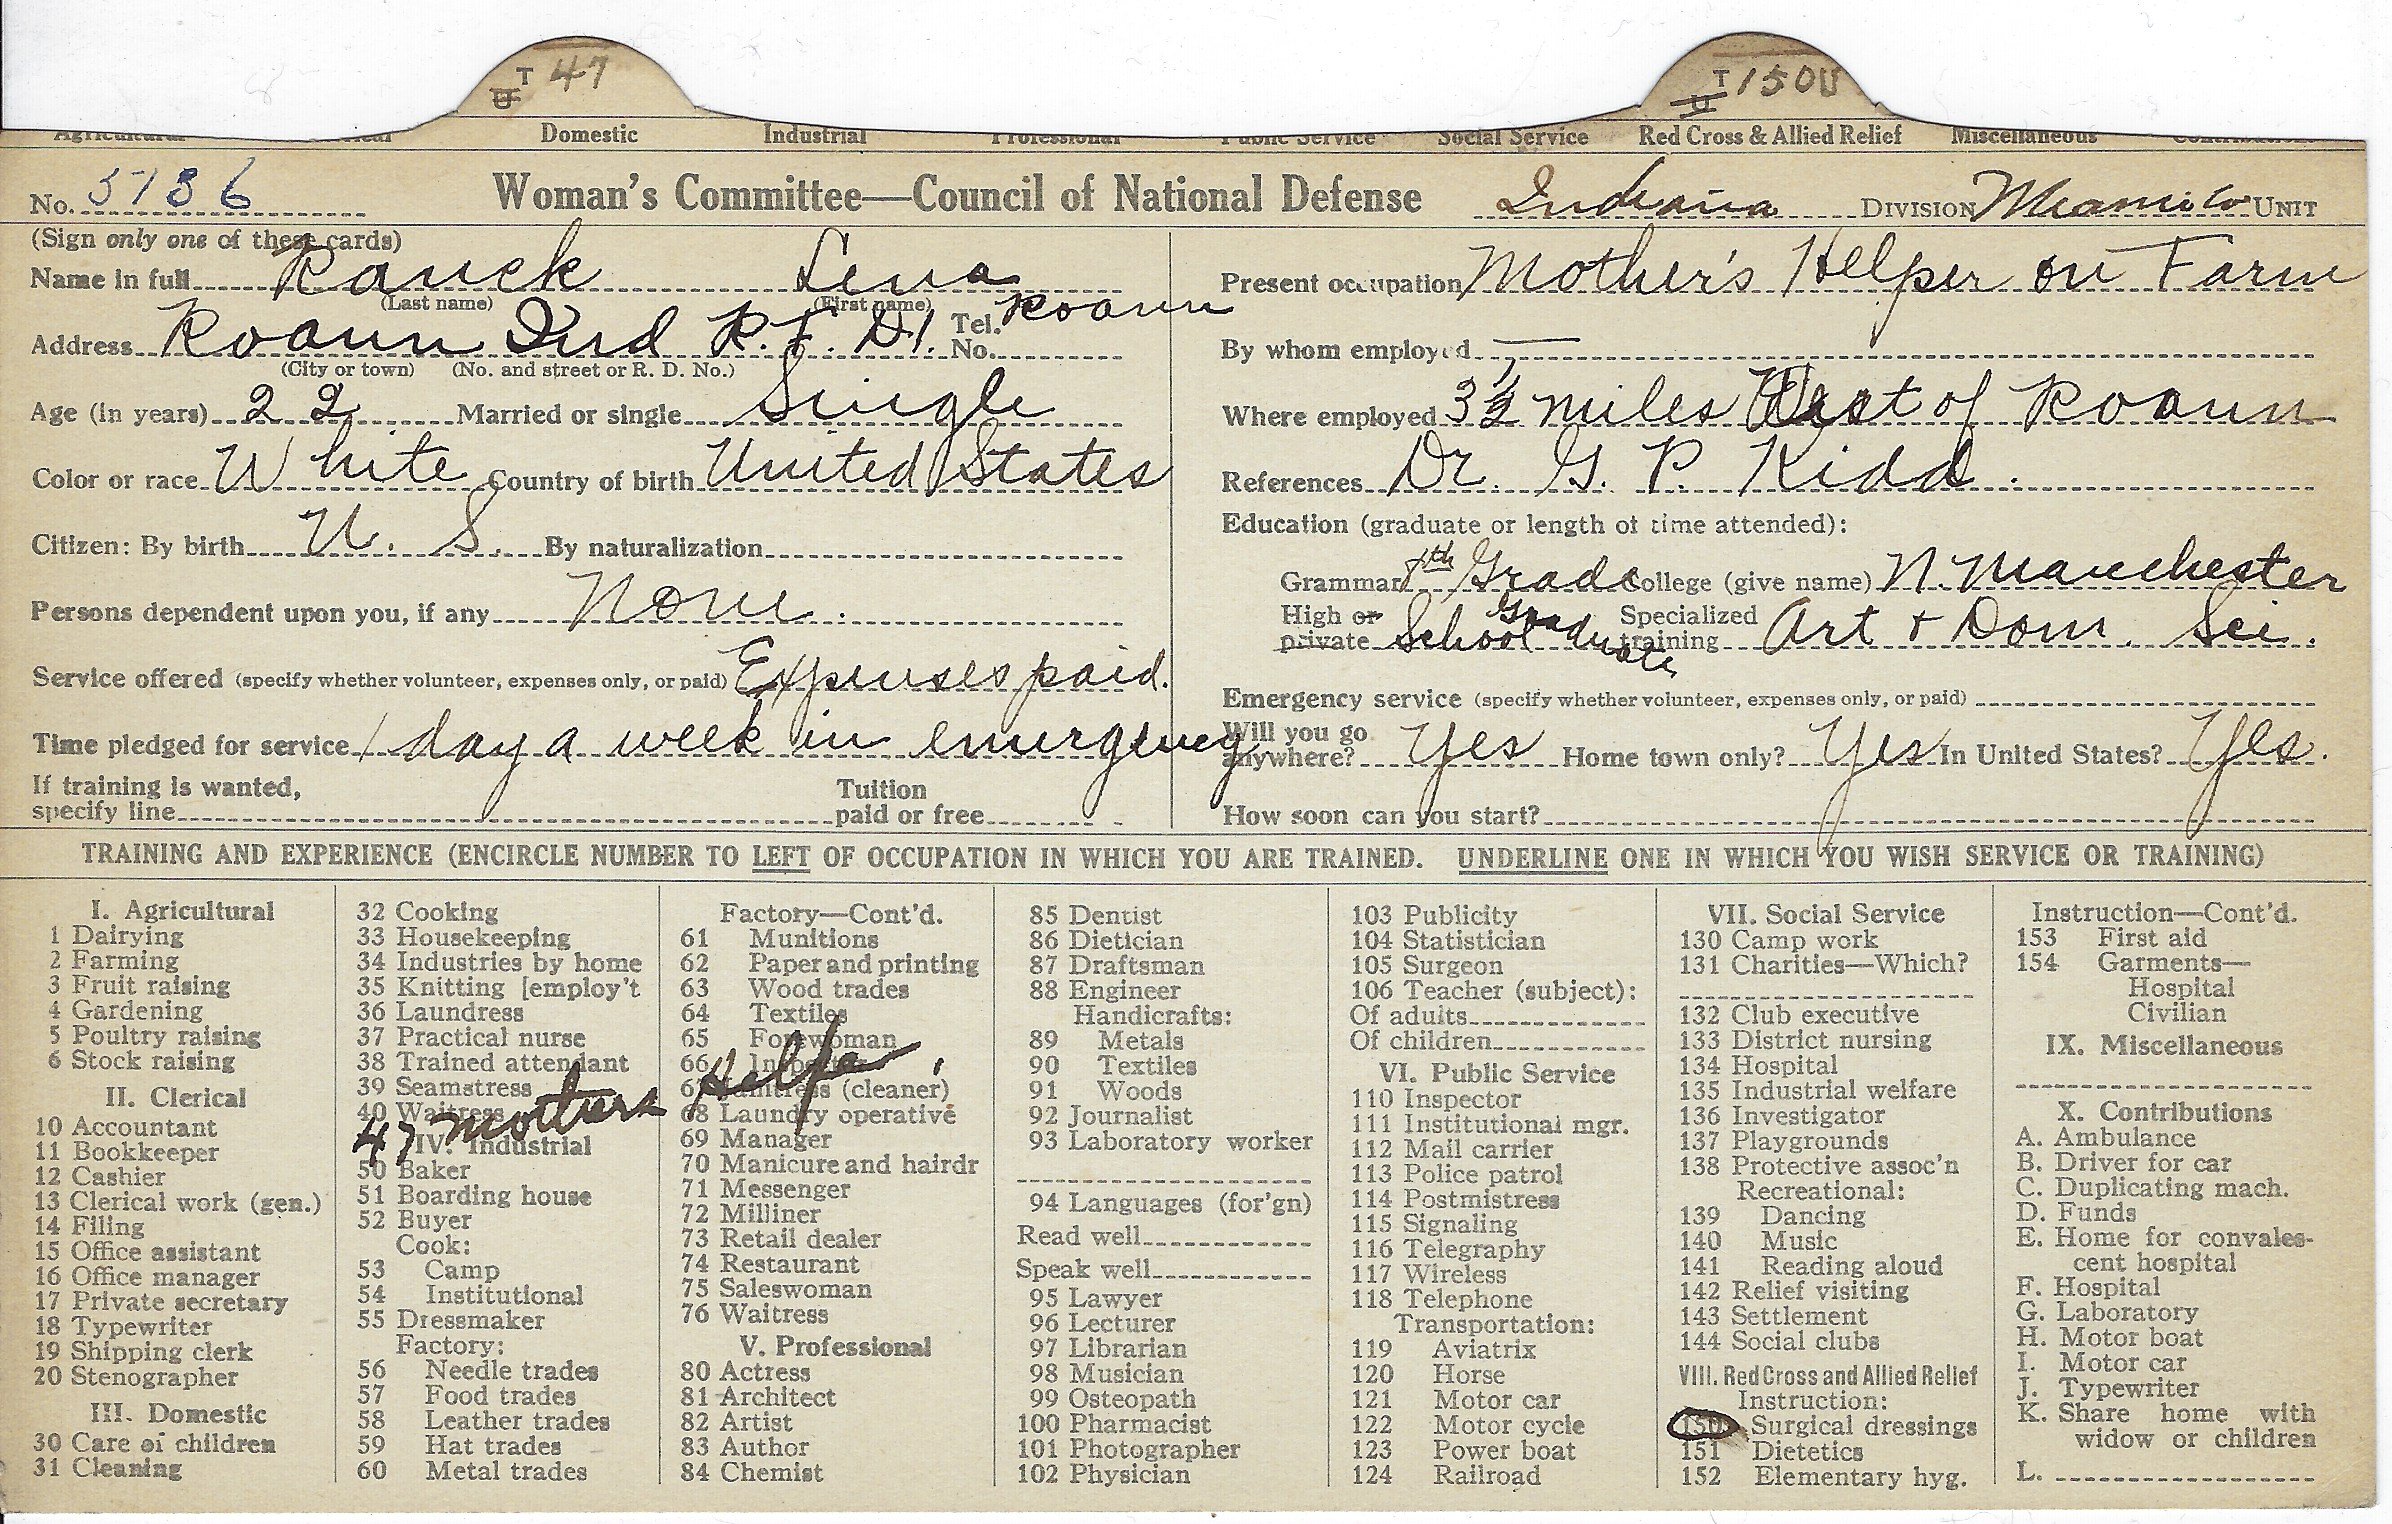 T U 47
T U 150U
Domestic Industrial Professional Public Service Social Service Red Cross & Allied Relief Miscellaneous
No. 5736 Woman's Committee—Council of National Defense Indiana DIVISION Miami Co UNIT
(Sign only one of these cards)
Name in full Ranck Lena
(Last name) (First name)
Address Roann Ind R.F.D.1. Tel. No. Roann
(City or town) (No. and street or R. D. No.)
Age (in years) 22 Married or single Single
Color or race White Country of birth United States
Citizen: By birth U. S. By naturalization
Persons dependent upon you, if any None.
Service offered (specify whether volunteer, expenses only, or paid) Expenses paid.
Time pledged for service 1 day a week in emergency
If training is wanted,
specify line Tuition paid or free
Present occupation Mother's Helper on Farm
By whom employed —
Where employed 3 1/2 miles of Roann
References Dr. G. P. Kidd.
Education (graduate or length of time attended):
Grammar Grade College (give name) N. Manchester
High or private School Graduate Specialized training Art + Dom. Sci.
Emergency service (specify whether volunteer, expenses only, or paid)
Will you go anywhere? Yes Home town only? Yes In United States? Yes.
How soon can you start?
TRAINING AND EXPERIENCE (ENCIRCLE NUMBER TO LEFT OF OCCUPATION IN WHICH YOU ARE TRAINED. UNDERLINE ONE IN WHICH YOU WISH SERVICE OR TRAINING)
I. Agricultural
1 Dairying
2 Farming
3 Fruit raising
4 Gardening
5 Poultry raising
6 Stock raising
II. Clerical
10 Accountant
11 Bookkeeper
12 Cashier
13 Clerical work (gen.)
14 Filing
15 Office assistant
16 Office manager
17 Private secretary
18 Typewriter
19 Shipping clerk
20 Stenographer
III. Domestic
30 Care of children
31 Cleaning
32 Cooking
33 Housekeeping
34 Industries by home
35 Knitting [employ't
36 Laundress
37 Practical nurse
38 Trained attendant
39 Seamstress
40 Waitress
47 Mothers Helper
IV. Industrial
50 Baker
51 Boarding house
52 Buyer
Cook:
53 Camp
54 Institutional
55 Dressmaker
Factory:
56 Needle trades
57 Food trades
58 Leather trades
59 Hat trades
60 Metal trades
Factory—Cont'd.
61 Munitions
62 Paper and printing
63 Wood trades
64 Textiles
65 Forewoman
66 Inspector
67 Janitress (cleaner)
68 Laundry operative
69 Manager
70 Manicure and hairdr
71 Messenger
72 Milliner
73 Retail dealer
74 Restaurant
75 Saleswoman
76 Waitress
V. Professional
80 Actress
81 Architect
82 Artist
83 Author
84 Chemist
85 Dentist
86 Dietician
87 Draftsman
88 Engineer
Handicrafts:
89 Metals
90 Textiles
91 Woods
92 Journalist
93 Laboratory worker
94 Languages (for'gn)
Read well
Speak well
95 Lawyer
96 Lecturer
97 Librarian
98 Musician
99 Osteopath
100 Pharmacist
101 Photographer
102 Physician
103 Publicity
104 Statistician
105 Surgeon
106 Teacher (subject):
Of adults
Of children
VI. Public Service
110 Inspector
111 Institutional mgr.
112 Mail carrier
113 Police patrol
114 Postmistress
115 Signaling
116 Telegraphy
117 Wireless
118 Telephone
Transportation:
119 Aviatrix
120 Horse
121 Motor car
122 Motor cycle
123 Power boat
124 Railroad
VII. Social Service
130 Camp work
131 Charities—Which?
132 Club executive
133 District nursing
134 Hospital
135 Industrial welfare
136 Investigator
137 Playgrounds
138 Protective assoc'n
Recreational:
139 Dancing
140 Music
141 Reading aloud
142 Relief visiting
143 Settlement
144 Social clubs
VIII. Red Cross and Allied Relief
Instruction:
150 Surgical dressings
151 Dietetics
152 Elementary hyg.
Instruction—Cont'd.
153 First aid
154 Garments—
Hospital
Civilian
IX. Miscellaneous
X. Contributions
A. Ambulance
B. Driver for car
C. Duplicating mach.
D. Funds
E. Home for convales-
cent hospital
F. Hospital
G. Laboratory
H. Motor boat
I. Motor car
J. Typewriter
K. Share home with
widow or children
L.